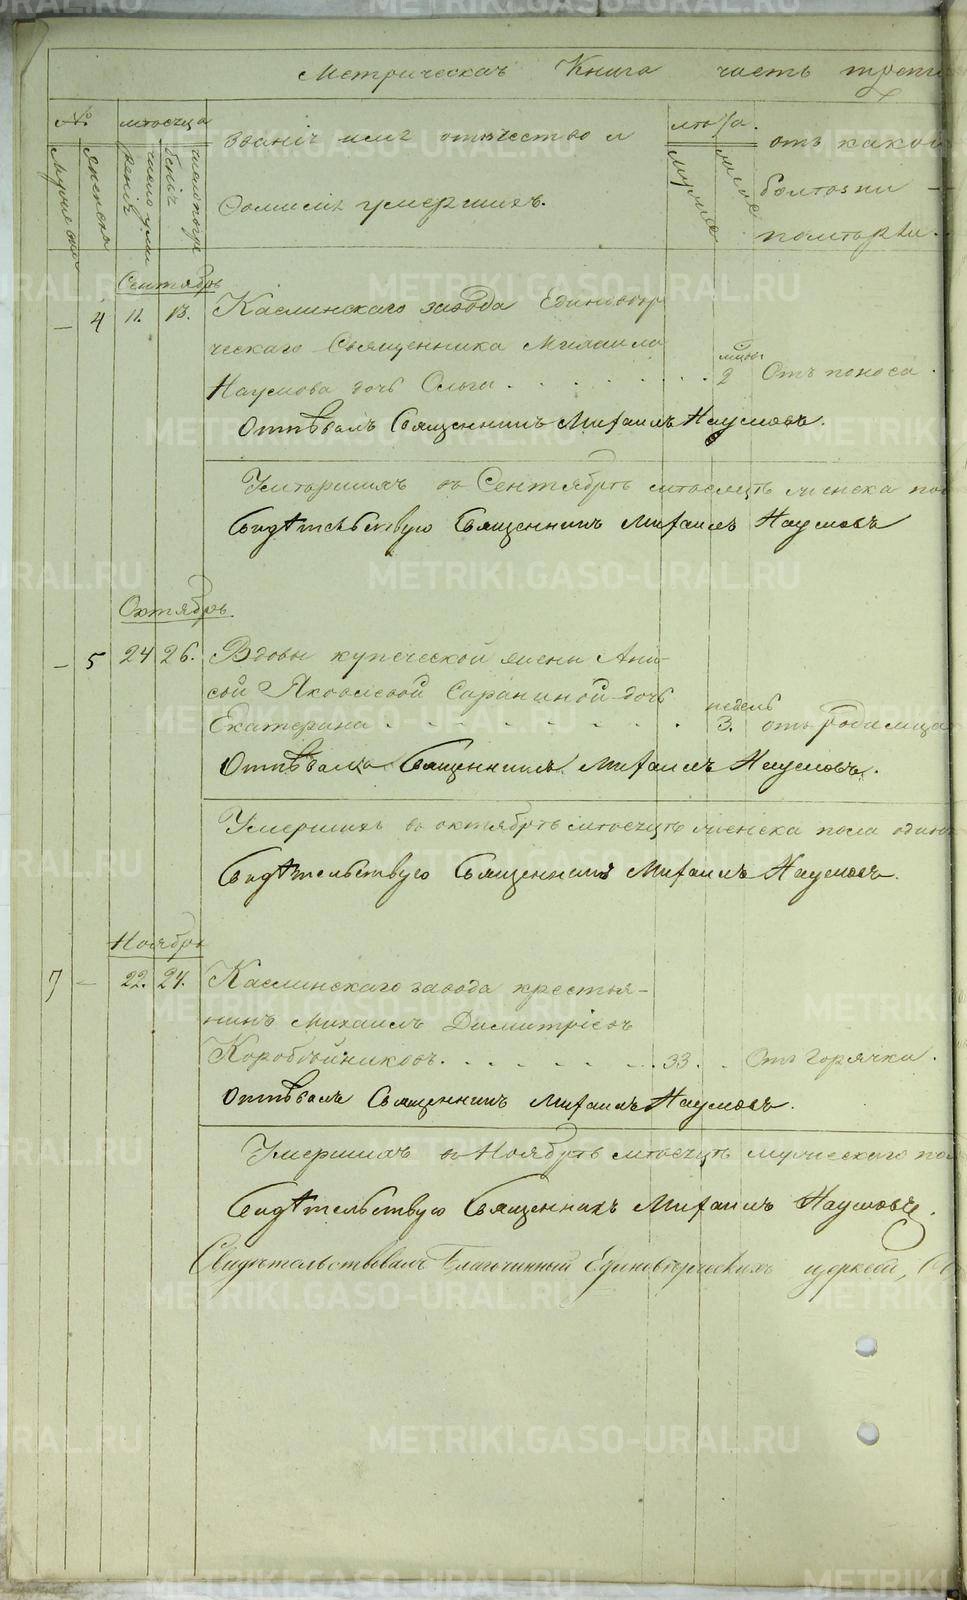 Метрическая Книга часть трет
№ мѣсяца званіе имя отчество и лѣта. отъ какой
Фамилія умершихъ. болѣзни
померли.
Мужеска Женска число умертвія число погребенія мужеска женска
Сентябрь
— 4 11. 13. Каслинскаго завода Единовѣр
ческаго Священника Михаила
Наумова дочь Ольга . . . . . . . . 2 Отъ поноса.
Отпѣвалъ Священникъ Михаилъ Наумовъ.
Умершихъ въ Сентябрѣ мѣсяцѣ женска по
Свидѣтельствую Священникъ Михаилъ Наумовъ
Октябрь.
— 5 24 26. Вдовы купеческой жены Ани-
сьи Яковлевой дочь недель
Екатерина . . . . . . . . . 3. отъ родимца
Отпѣвалъ Священникъ Михаилъ Наумовъ.
Умершихъ въ октябрѣ мѣсяцѣ женска пола один
Свидѣтельствую Священникъ Михаилъ Наумовъ.
Ноябрь
7 — 22. 24. Каслинскаго завода крестья-
нинъ Михаилъ Димитріевъ
Коробейниковъ. . . . . . . . 33. . Отъ Горячки.
Отпѣвалъ Священникъ Михаилъ Наумовъ.
Умершихъ въ Ноябрѣ мѣсяцѣ мужескаго по
Свидѣтельствую Священникъ Михаилъ Наумовъ.
Свидѣтельствовалъ Благочинный Единовѣрческихъ церквей,
METRIKI.GASO-URAL.RU